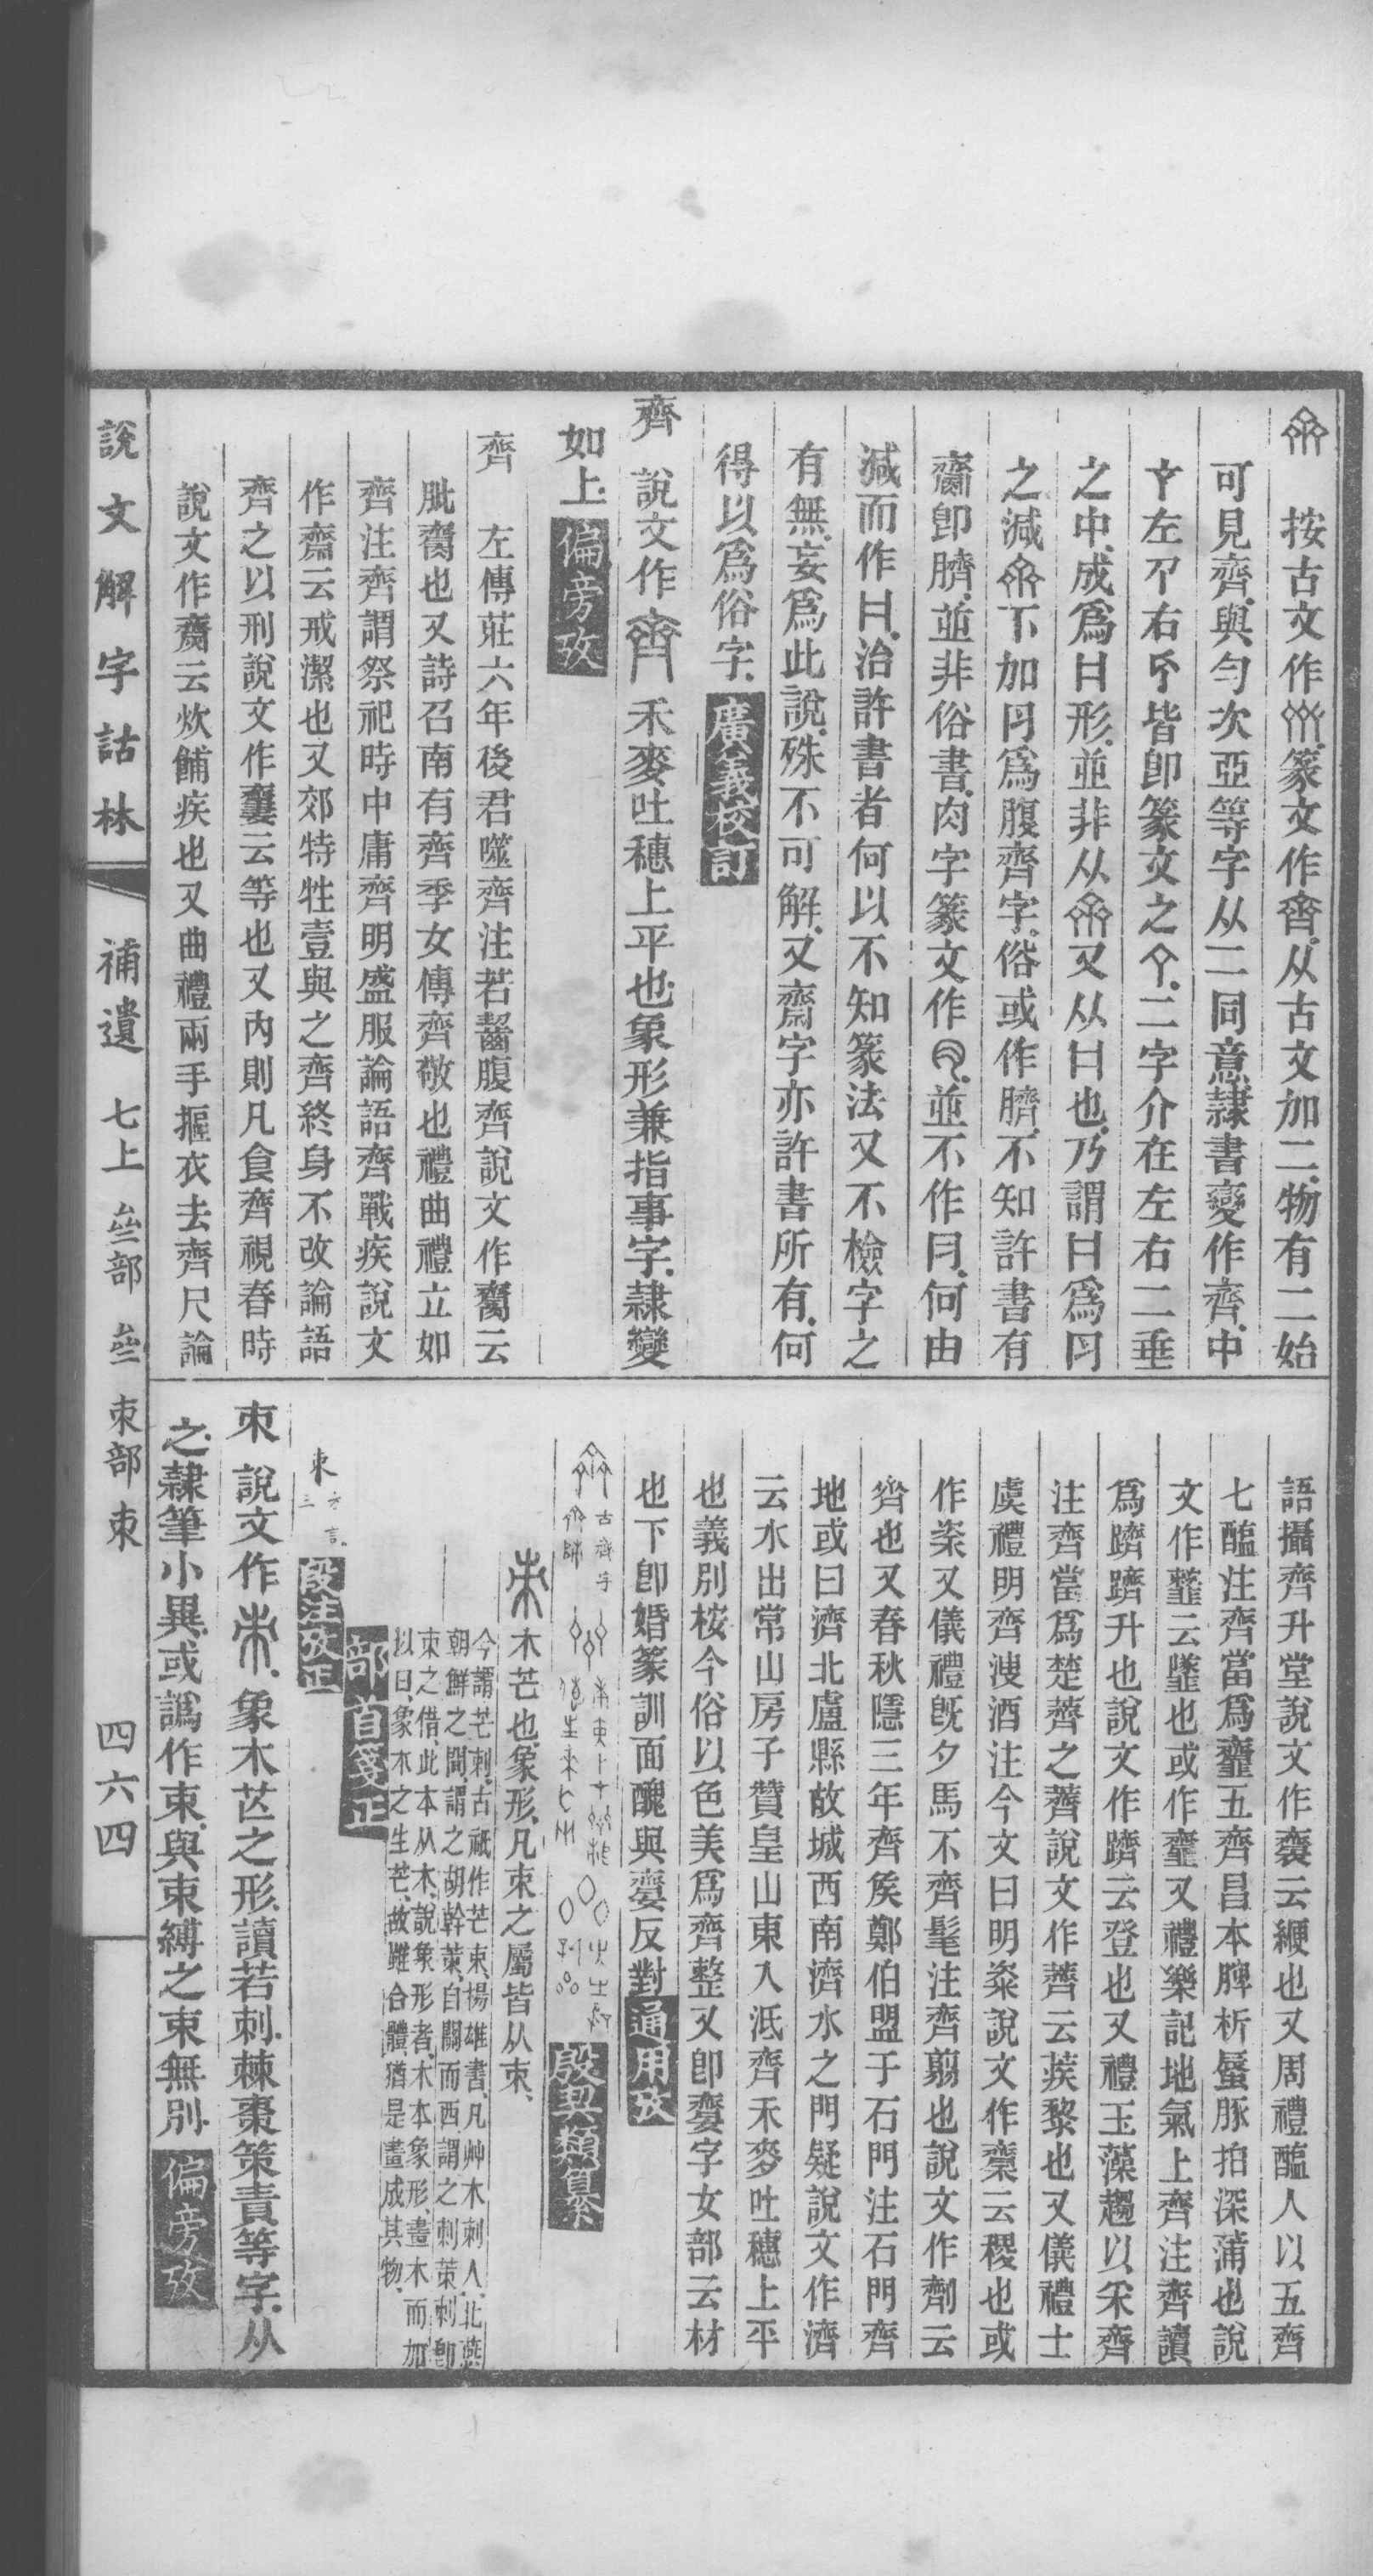 按古文作𠫼篆文作齊从古文加二物有二始
可見齊與勻次亞等字从二同意隷書變作齊中
丫左右皆卽篆文之二字介在左右二垂
之中成爲日形並非从又从日也乃謂日爲⺝
之減下加⺝爲腹齊字俗或作臍不知許書有
齎卽臍並非俗書肉字篆文作並不作⺝何由
減而作日治許書者何以不知篆法又不檢字之
有無妄爲此說殊不可解又齋字亦許書所有何
得以爲俗字廣義校訂
齊 說文作禾麥吐穗上平也象形兼指事字隷變
如上偏旁攷
齊 左傳莊六年後君噬齊注若齧腹齊說文作臍云
肶臍也又詩召南有齊季女傳齊敬也禮曲禮立如
齊注齊謂祭祀時中庸齊明盛服論語齊戰疾說文
作齋云戒潔也又郊特牲壹與之齊終身不改論語
齊之以刑說文作云等也又內則凡食齊視春時
說文作云炊餔疾也又曲禮兩手摳衣去齊尺論
語攝齊升堂說文作云緶也又周禮醢人以五齊
七醢注齊當爲齏五齊昌本脾析蜃豚拍深蒲也說
文作云墜也或作又禮樂記地氣上齊注齊讀
爲躋躋升也說文作躋云登也又禮玉藻趨以采齊
注齊當爲楚薺之薺說文作薺云蒺黎也又儀禮士
虞禮明齊溲酒注今文曰明粢說文作云稷也或
作粢又儀禮旣夕馬不齊髦注齊翦也說文作劑云
齊也又春秋隱三年齊矦鄭伯盟于石門注石門齊
地或曰濟北盧縣故城西南濟水之門疑說文作濟
云水出常山房子贊皇山東入泜齊禾麥吐穗上平
也義別桉今俗以色美爲齊整又卽字女部云材
也下卽婚篆訓面醜與反對通用攷
古齊字
齊歸
殷契類纂
朿 木芒也象形凡朿之屬皆从朿
今謂芒刺古祇作芒朿揚雄書凡艸木刺人北燕
朝鮮之閒謂之茦自關而西謂之刺茦刺卽
朿之借此本从木說象形者木本象形畫木而加
以曰象木之生芒故雖合體猶是畫成其物
部首箋正
朿 六言三 段注攷正
朿 說文作象木芒之形讀若刺棘棗策責等字从
之隷筆小異或譌作束與束縛之束無別偏旁攷
說文解字詁林 補遺 七上 部 朿部 朿 四六四